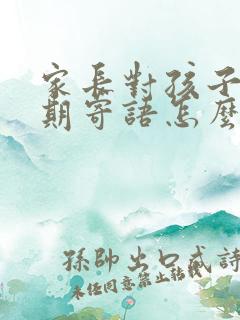 家長對孩子
期寄語怎麼
孫帥出口成詩
未經同意禁止轉載